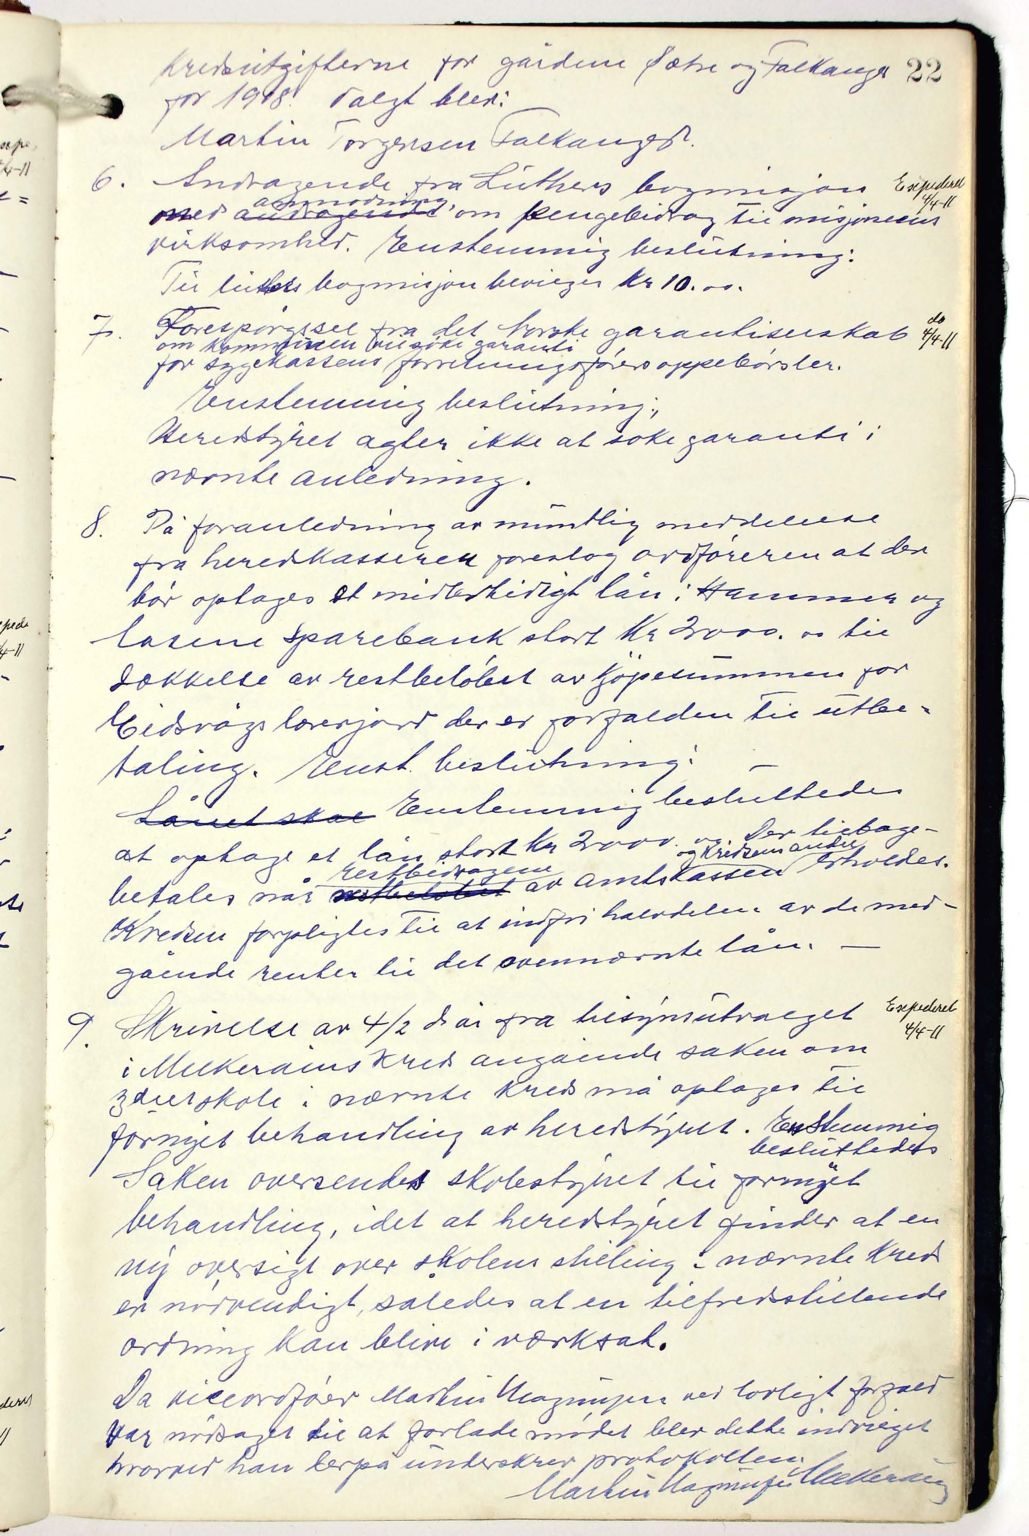 kredsutgifterne for gårdene Sætre og Falkanger 22
for 1918. Valgt blev:
Martin Torgersen Falkanger.
6. Andragende fra Luthers bogmisjon Expederet 4/4-11
anmodning
med andragende om pengebidrag til misjonens
virksomhed. Enstemmig beslutning:
Til luthers bogmisjon beviges kr 10.00.
7. Forespørgsel fra det Norske garantiselskab do 4/4-11
om kommunen vil søke garanti
for sygekassens forretningsførers oppebørsler.
Enstemmig beslutning:
Heredstyret agter ikke at søke garanti i
nævnte anledning.
8. På foranledning av mundtlig meddelelse
fra heredkasseren foreslog ordføreren at der
bør optages et midlertidigt lån i Hammer og
Åsene Sparebank stort Kr 2000.00 til
dækkelse av restbeløbet av kjøpesummen for
Eidsvågs lærerjord der er forfalden til utbe-
taling. Enst. beslutning:
Lånet skal Enstemmig besluttedes
at optage et lån stort Kr 2000.00 Der tilbage-
restbidragene og kredsens andre
betales når restbeløbet av amtskassen erholdes.
Kredsen forpligtes til at indfri halvdelen av de med-
gående renter til det ovennævnte lån. —
9. Skrivelse av 4/2 d.år fra tilsynsutvalget Expederet 4/4-11
i Melkeråens kred angående saken om
3delt skole i nævnte kreds må optages til
fornyet behandling av heredstyret. Enstemmig
besluttedes
Saken oversendes skolestyret til fornyet
behandling, idet at heredstyret finder at en
ny oversigt over skolens stilling i nævnte kred
er nødvendigt, således at en tilfredstillende
ordning kan blive i værksat.
Da viceordfører Martin Magnussen ved lovligt forfald
var nødsaget til at forlade mødet blev dette indvilget
hvorved han herpå underskrev protokollen.
Martin Magnussen Melkeråen